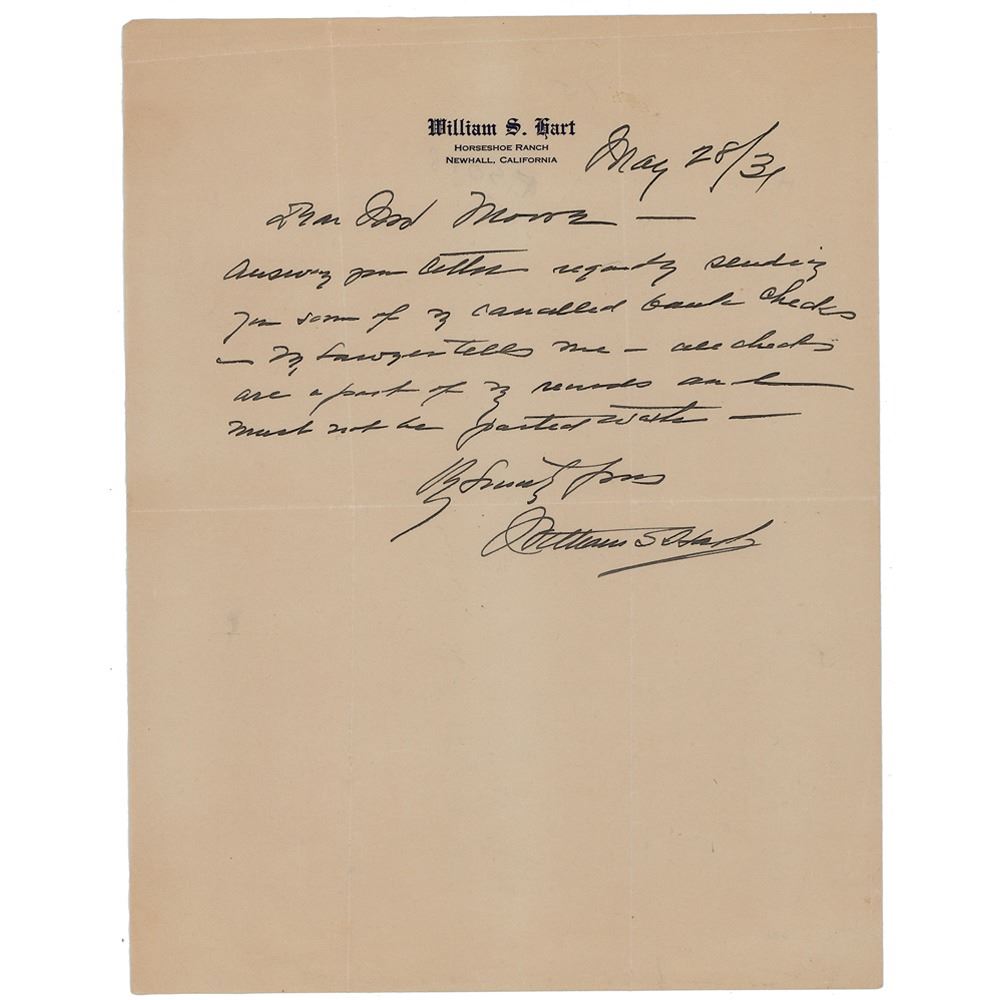 William S. Hart
HORSESHOE RANCH
NEWHALL, CALIFORNIA
May 28/31
Dear Moore —
Answering your letter regarding sending
you some of my cancelled bank checks
— my Lawyer tells me — all checks
are a part of my records and
must not be parted with —
Sincerely yours
William S Hart